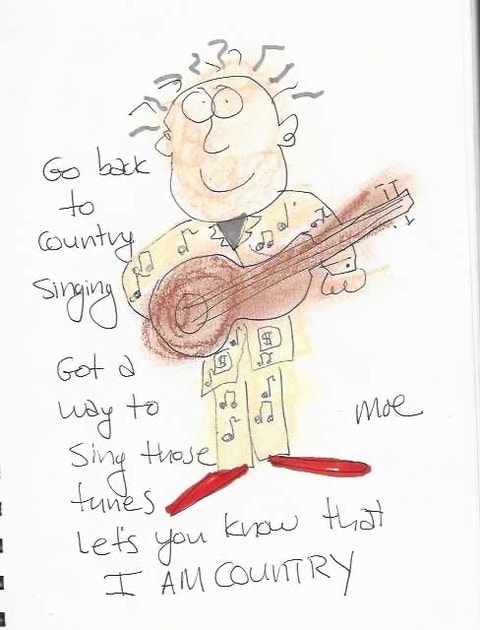 Go back
to
Country
Singing
Got a
way to
Sing those
tunes
Let's you know that
I AM COUNTRY
Moe
$
$